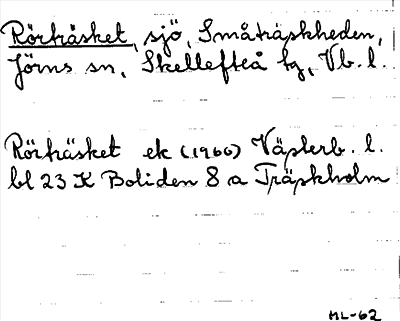 Rörträsket, sjö, Småträskheden,
Jörns sn, Skellefteå tg, Vb. l.
Rörträsket ek (1966) Västerb. l.
bl 23 K Boliden 8 a Träskholm
ML-62